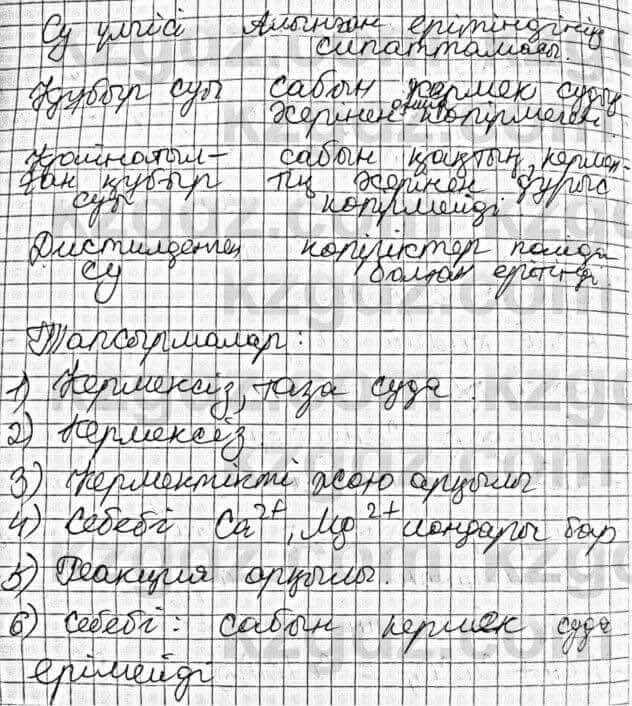 Су үлгісі Алынған ерітіндінің
сипаттамасы.
Құбыр суы сабын кермек судың
әсерінен көпірмеген
Қайнатыл- сабын қақтың, кермек-
ған құбыр тің әсерінен дұрыс
суы көпірмейді
Дистилденген көпіріктер пайда
су болған ерітінді.
Тапсырмалар:
1) Кермексіз, таза суда
2) Кермексіз
3) Кермектікті жою арқылы
4) Себебі Ca²⁺, Mg²⁺ иондары бар
5) Реакция арқылы.
6) Себебі: сабын кермек суда
ерімейді
kzgdz.com